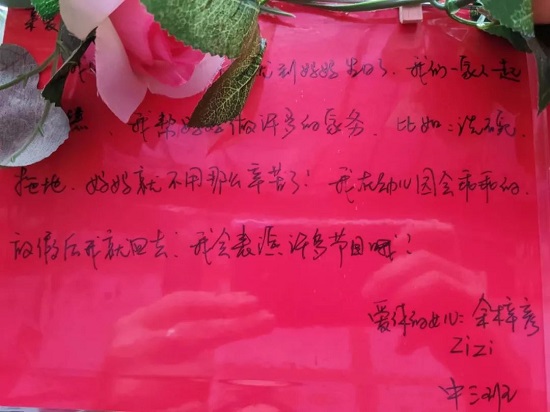 亲爱
我 到妈妈生日了、我们一家人一起
我帮妈妈做许多的家务、比如:洗碗、
拖地、妈妈就不用那么辛苦了!我在幼儿园会乖乖的、
放假后我就回去、我会表演许多节目哦!
爱你的女儿:金梓彦
ZiZi
中三班